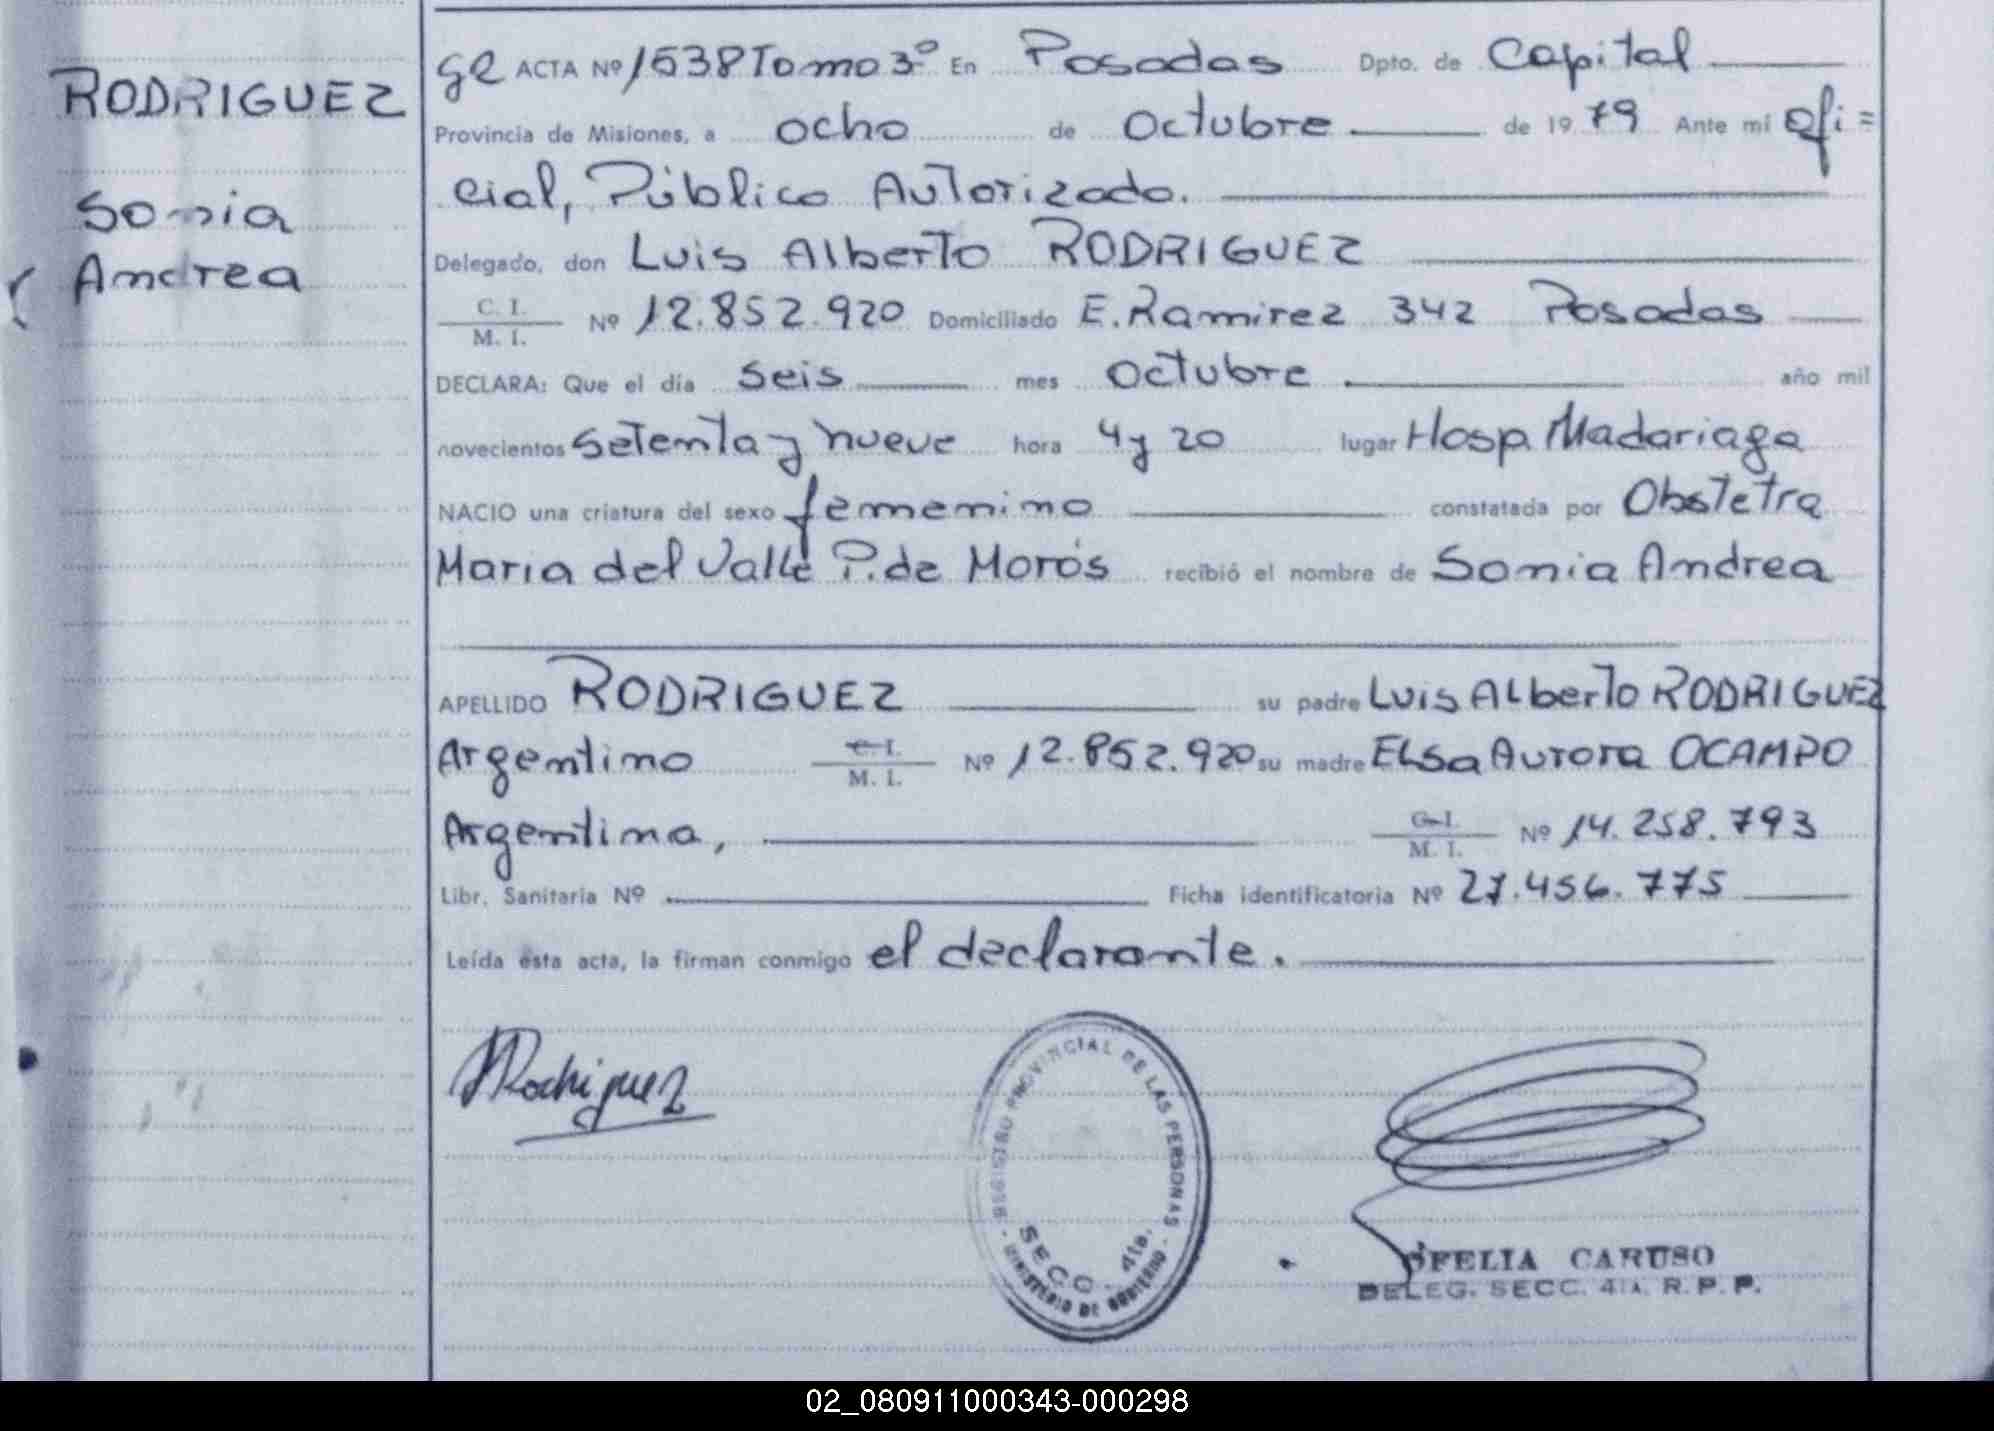 RODRIGUEZ
Sonia
Andrea
ACTA Nº 1538 Tomo 3º En Posadas Dpto. de Capital
Provincia de Misiones, a ocho de Octubre de 1979 Ante mi Ofi=
cial, Público Autorizado.
Delegado, don Luis Alberto RODRIGUEZ
C. I.
M. I. Nº 12.852.920 Domiciliado E. Ramirez 342 Posadas
DECLARA: Que el día seis mes Octubre año mil
novecientos setenta y nueve hora 4 y 20 lugar Hosp. Madariaga
NACIO una criatura del sexo femenino constatada por Obstetra
Maria del Valle P. de Morós recibió el nombre de Sonia Andrea
APELLIDO RODRIGUEZ su padre Luis Alberto RODRIGUEZ
Argentino C. I. M. I. Nº 12.852.920 su madre Elsa Aurora OCAMPO
Argentina, C. I. M. I. Nº 14.258.793
Libr. Sanitaria Nº Ficha identificatoria Nº 27.456.775
Leída esta acta, la firman conmigo el declarante.
Rodriguez
REGISTRO PROVINCIAL DE LAS PERSONAS
SECC. 4ta.
MINISTERIO DE GOBIERNO
OFELIA CARUSO
DELEG. SECC. 4TA. R. P. P.
02_080911000343-000298